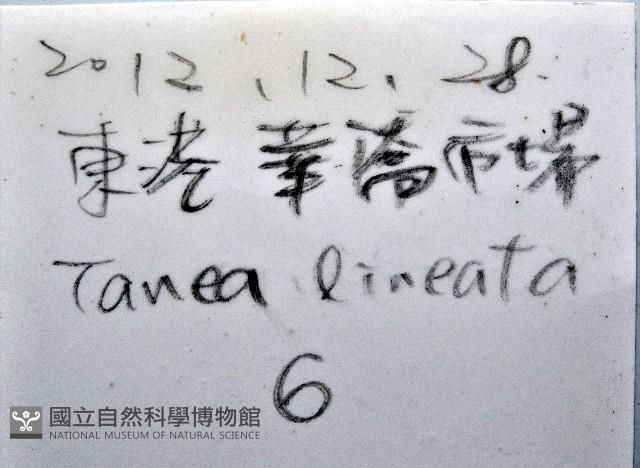 2012、12、28.
東港 華僑市場
Tanea lineata
6
國立自然科學博物館
NATIONAL MUSEUM OF NATURAL SCIENCE